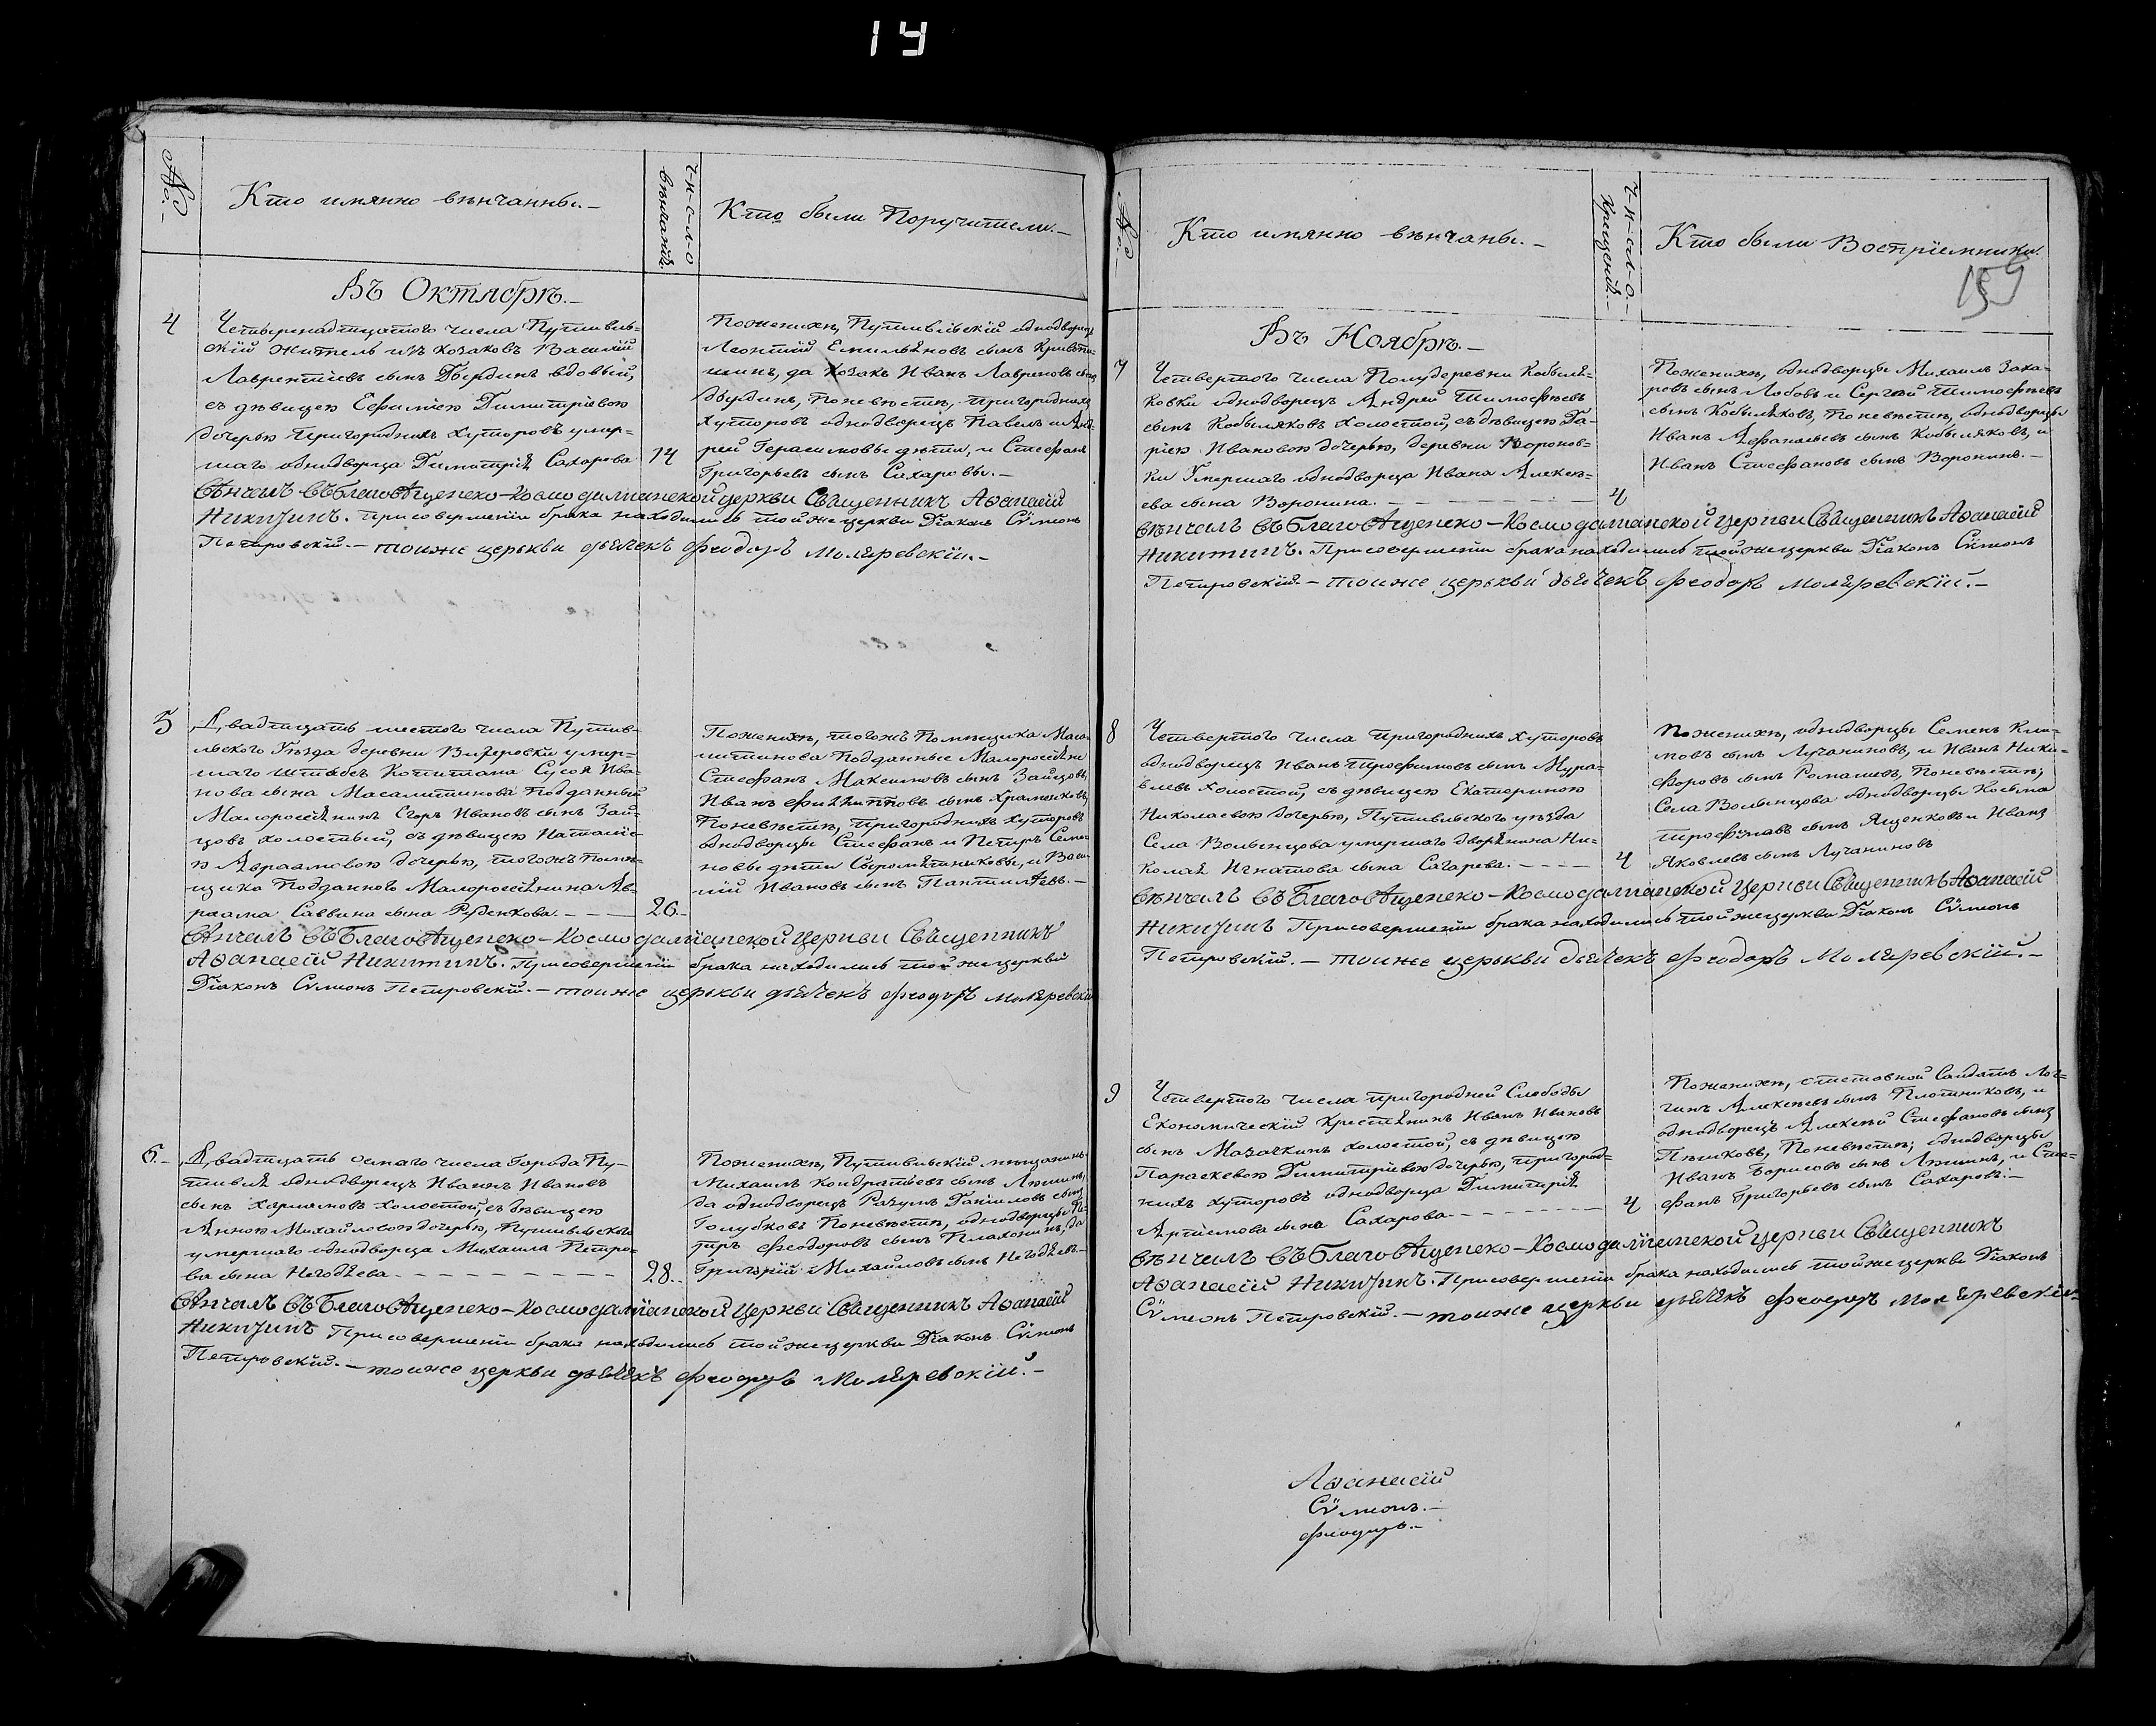 14
№.
Кто имянно вѣнчанны.
Ч-и-с-л-о
вѣнчаній.
Кто были Поручители.
Въ Октябрѣ.
4
Четвернадцатого числа Путивль-
скій житель изъ козаковъ Василій
Лаврентіевъ сынъ вдовый,
съ дѣвицею Евфиміею Димитріевою
дочерью пригородныхъ хуторовъ умер-
шаго однодворца Димитрія Сахарова
14
Поженихѣ, Путивльскій однодворецъ
Леонтій Емильяновъ сынъ
да козакъ Иванъ Лавреновъ сынъ
Поневѣстѣ, пригородныхъ
хуторовъ однодворецъ Павелъ и Анд-
рей Герасимовы дѣти, и Стефанъ
Григорьевъ сынъ Сахаровы.
Вѣнчалъ въ Благовѣщенско-Космодаміанской церкви Священникъ Аѳанасій
Никитинъ. При совершеніи брака находились той же церкви Діаконъ Сѵмеонъ
Петровскій. тоиже церькви дьячекъ Феодоръ Моляревскіи.
5
Двадцать шестого числа Путив-
льского Уѣзда деревни умер-
шаго штабсъ Капитана Сысоя Ива-
нова сына Масалитинова Подданный
Малоросіянинъ Егоръ Ивановъ сынъ Зай-
цовъ холостый, съ дѣвицею Наталіе-
ю Авраамовою дочерью, тогожъ помѣ-
щика Подданного Малоросіянина Ав-
раама Саввина сына Руденкова.
26
Поженихѣ, тогожъ Помѣщика Маса-
литинова Подданные Малоросіяне
Стефанъ Максимовъ сынъ Зайцовъ,
Иванъ Филипповъ сынъ Храменковъ,
Поневѣстѣ, пригородныхъ хуторовъ
однодворцы Стефанъ и Петръ Семе-
новы дѣти Сыромятниковы, и Васи-
лій Ивановъ сынъ Пантилѣевъ.
Вѣнчалъ въ Благовѣщенско-Космодаміанской Церкви Священникъ
Аѳанасій Никитинъ. При совершеніи брака находились той же церкви
Діаконъ Сѵмеонъ Петровскій. тоиже церькви дьячекъ Феодоръ Моляревскіи
6.
Двадцать осмаго числа города Пу-
тивля однодворецъ Иванъ Ивановъ
сынъ холостой, съ дѣвицею
Анною Михайловою дочерью, Путивльского
умершаго однодворца Михаила Петро-
ва сына Негодяева
28.
Поженихѣ, Путивльскій мѣщанинъ
Михаилъ Кондратьевъ сынъ
да однодворецъ Разумъ Даниловъ сынъ
Голубковъ Поневѣстѣ, однодворцы Пе-
тръ Феодоровъ сынъ Плахотинъ, да
Григорій Михайловъ сынъ Негодяевъ.
Вѣнчалъ въ Благовѣщенско-Космодаміанской Церкви Священникъ Аѳанасій
Никитинъ При совершеніи брака находились той же церкви Діаконъ Сѵмеонъ
Петровскій. тоиже церкви дьячекъ Феодоръ Моляревскіи.
№.
Кто имянно вѣнчаны.
Ч-и-с-л-о.
Крещеній.
Кто были Воспріемники.
159
Въ Ноябрѣ.
7
Четвертого числа Полудеревни Кобыля-
ковки однодворецъ Андрей Тимофѣевъ
сынъ Кобыляковъ холостой, съ дѣвицею Да-
ріею Ивановою дочерью, деревни Воронов-
ки Умершаго однодворца Ивана Алексѣ-
ева сына Воронина.
4
Поженихѣ, однодворцы Михаилъ Заха-
ровъ сынъ Лобовъ и Сергѣй Тимофѣевъ
сынъ Кобыляковъ, Поневѣстѣ, однодворцы
Иванъ Афанасьевъ сынъ Кобыляковъ, и
Иванъ Стефановъ сынъ Воронинъ.
Вѣнчалъ въ Благовѣщенско-Космодаміанской Церкви Священникъ Аѳанасій
Никитинъ. При совершеніи брака находились той же церкви Діаконъ Сѵмеонъ
Петровскій. тоиже церькви дьячекъ Феодоръ Моляревскіи.
8
Четвертого числа пригородныхъ хуторовъ
однодворецъ Иванъ Трофимовъ сынъ Мура-
влевъ холостой, съ дѣвицею Екатериною
Николаевою дочерью, Путивльского уѣзда
Села Волынцова умершаго дворянина Ни-
колая Игнатова сына Сагарева.
4
Поженихѣ, однодворцы Семенъ Кли-
мовъ сынъ Лучаниновъ, и Иванъ Ники-
форовъ сынъ Ромашевъ, Поневѣстѣ;
Села Волынцова однодворцы Косьма
сынъ Ященковъ и Иванъ
Яковлевъ сынъ Лучаниновъ
Вѣнчалъ въ Благовѣщенско-Космодаміанской Церкви Священникъ Аѳанасій
Никитинъ При совершеніи брака находились той же церкви Діаконъ Сѵмеонъ
Петровскій. тоиже церькви дьячекъ Феодоръ Моляревскіи.
9
Четвертого числа пригородней Слободы
Економическій Крестьянинъ Иванъ Ивановъ
сынъ Мазачкинъ холостой, съ дѣвицею
Параскевою Димитріевою дочерью, пригород-
ныхъ хуторовъ однодворца Димитрія
Артіомова сына Сахарова
4
Поженихѣ, статовной Салдатъ Лог-
гинъ Алексѣевъ сынъ Плотниковъ, и
однодворецъ Алексѣй Стефановъ сынъ
Пѣшковъ, Поневѣстѣ; однодворцы
Иванъ Борисовъ сынъ и Сте-
фанъ Григорьевъ сынъ Сахаровъ.
Вѣнчалъ въ Благовѣщенско-Космодаміанской Церкви Священникъ
Аѳанасій Никитинъ. При совершеніи брака находились той же церкви Діаконъ
Сѵмеонъ Петровскій. тоиже церкви дьячекъ Феодоръ Моляревскіи
Аѳанасій
Сѵмеонъ.
Феодоръ.